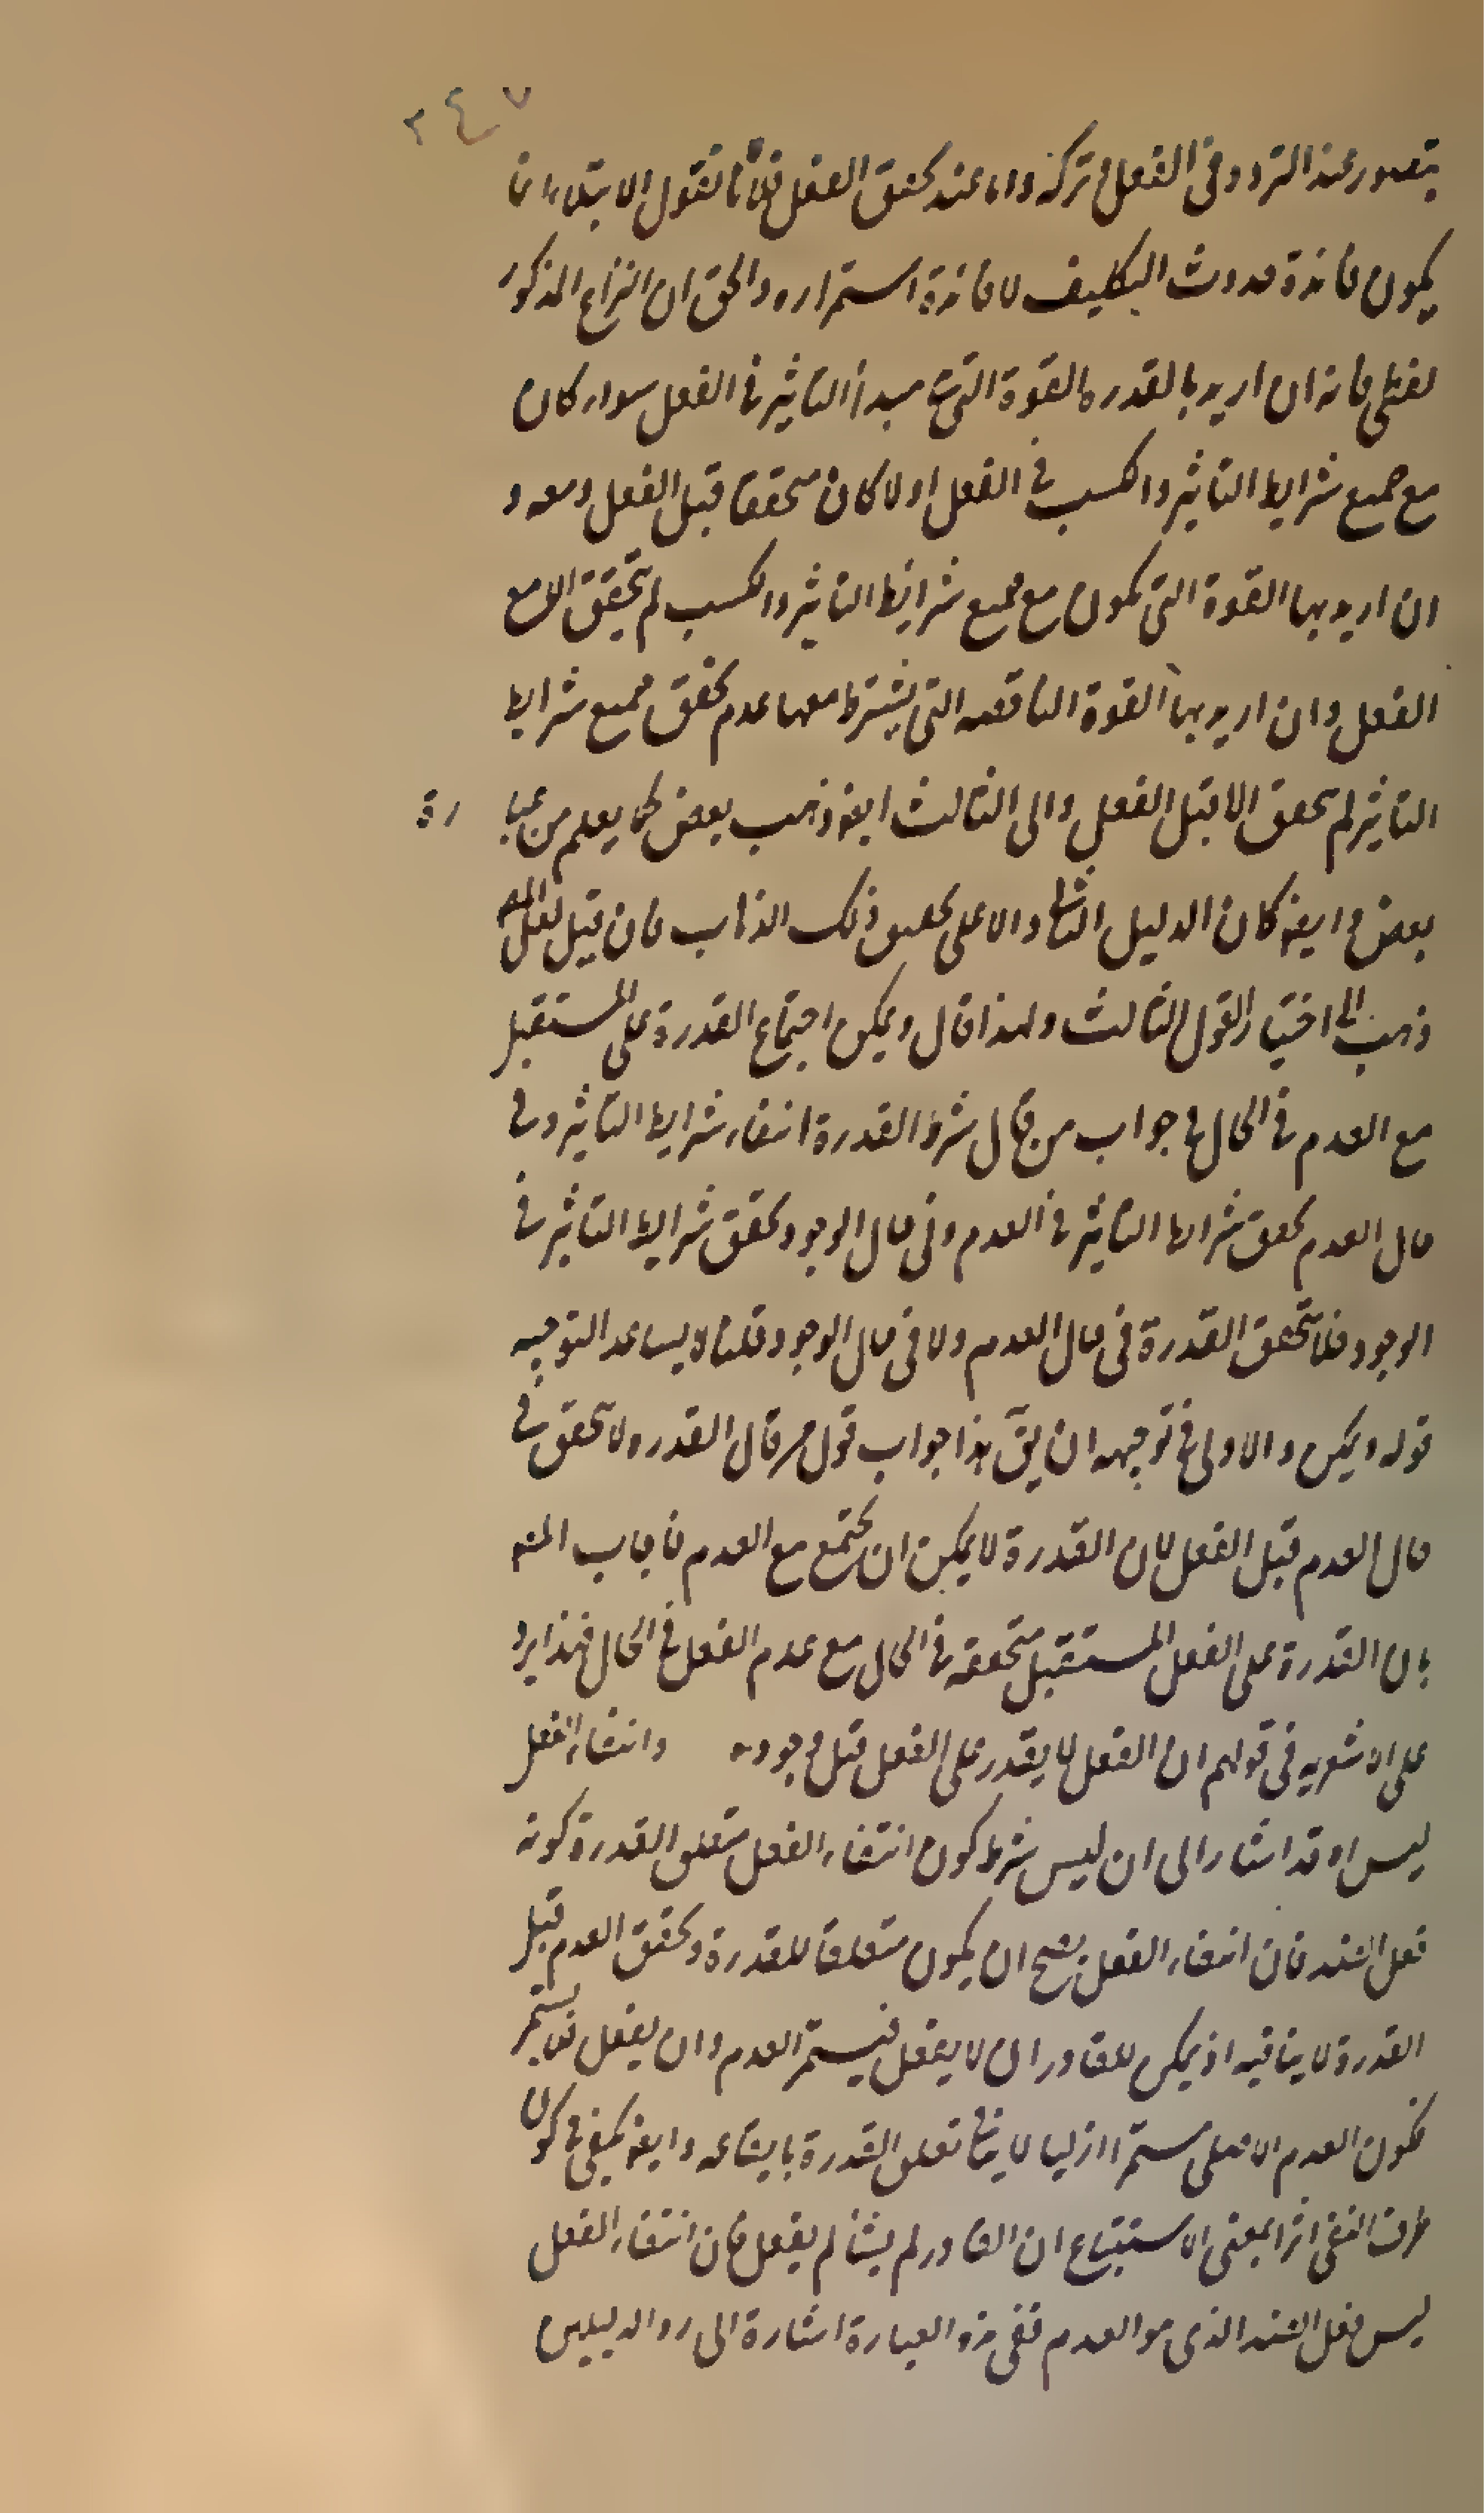 ٢٤٧
يتصور عند التردد فى الفعل و تركه و اما عند تحقق الفعل فلانا نقول الابتلاء انما
يكون فائدة حدوث التكليف لا فائدة استمراره و الحق ان النزاع المذكور
لفظى فانه ان اريد بالقدرة القوة التى هى مبدأ التاثير فى الفعل سواء كان
مع جميع شرايط التاثير و الكسب فى الفعل او لا كان متحققا قبل الفعل و معه و
ان اريد بها القوة التى يكون مع جميع شرايط التاثير و الكسب لم يتحقق الا مع
الفعل و ان اريد بها القوة الناقصه التى يشترط معها عدم تحقق جميع شرايط
التاثير لم يتحقق الا قبل الفعل و الى الثالث ايضا ذهب بعض كما يعلم من عبارة
بعض و ايضا كان الدليل الثانى دالا على تحقيق ذلك الذهاب فان قيل لعل المصـ
ذهب الى اختيار القول الثالث و لهذا قال و يمكن اجتماع القدرة على المستقبل
مع العدم فى الحال فى جواب من قال شرط القدرة انتفاء شرايط التاثير و فى
حال العدم تحقق شرايط التاثير فى العدم و فى حال الوجود تحقق شرايط التاثير فى
الوجود فلا تتحقق القدرة فى حال العدم و لا فى حال الوجود قلنا لا يساعد التوجيه
قوله و يمكن و الاولى فى توجيهه ان يق هذا جواب قول من قال القدرة لا تتحقق فى
حال العدم قبل الفعل لان القدرة لا يمكن ان تجتمع مع العدم فاجاب المصـ
بان القدرة على الفعل المستقبل متحققه فى الحال مع عدم الفعل فى الحال فهذا يرد
على الاشعريه فى قولهم ان الفعل لا يقدر على الفعل قبل وجوده و انتفاء الفعل
ليس اه قد اشار الى ان ليس شرط كون انتفاء الفعل متعلق القدرة كونه
فعل الضد فان انتفاء الفعل يصح ان يكون متعلقا للقدرة و تحقق العدم قبل
القدرة لا ينافيه اذ يمكن للقادر ان لا يفعل فيستمر العدم و ان يفعل فلا يستمر
فكون العدم الاصلى مستمرا ازليا لا ينافى تعلق القدرة بابقائه و ايضا يكفى فى كون
طرف النفى اثرا بمعنى الاستتباع ان القادر لم يشأ لم يفعل فان انتفاء الفعل
ليس فعل الضد الذى هو العدم ففى هذه العبارة اشارة الى رد الدليلين